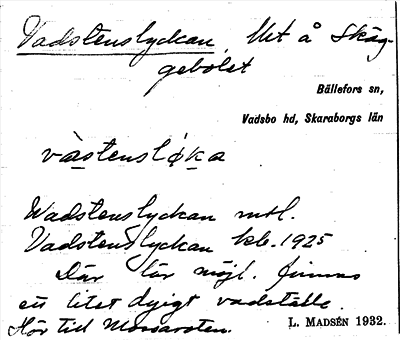 Vadstenslyckan, Ut å Skäg-
gebolet
Bällefors sn,
Vadsbo hd, Skaraborgs län
va̲stenslø̲ka
Wadstenslyckan mtl.
Vadstenslyckan kb. 1925
Där lär möjl. finnas
ett litet dyigt vadställe.
Hör till
L. MADSÉN 1932.